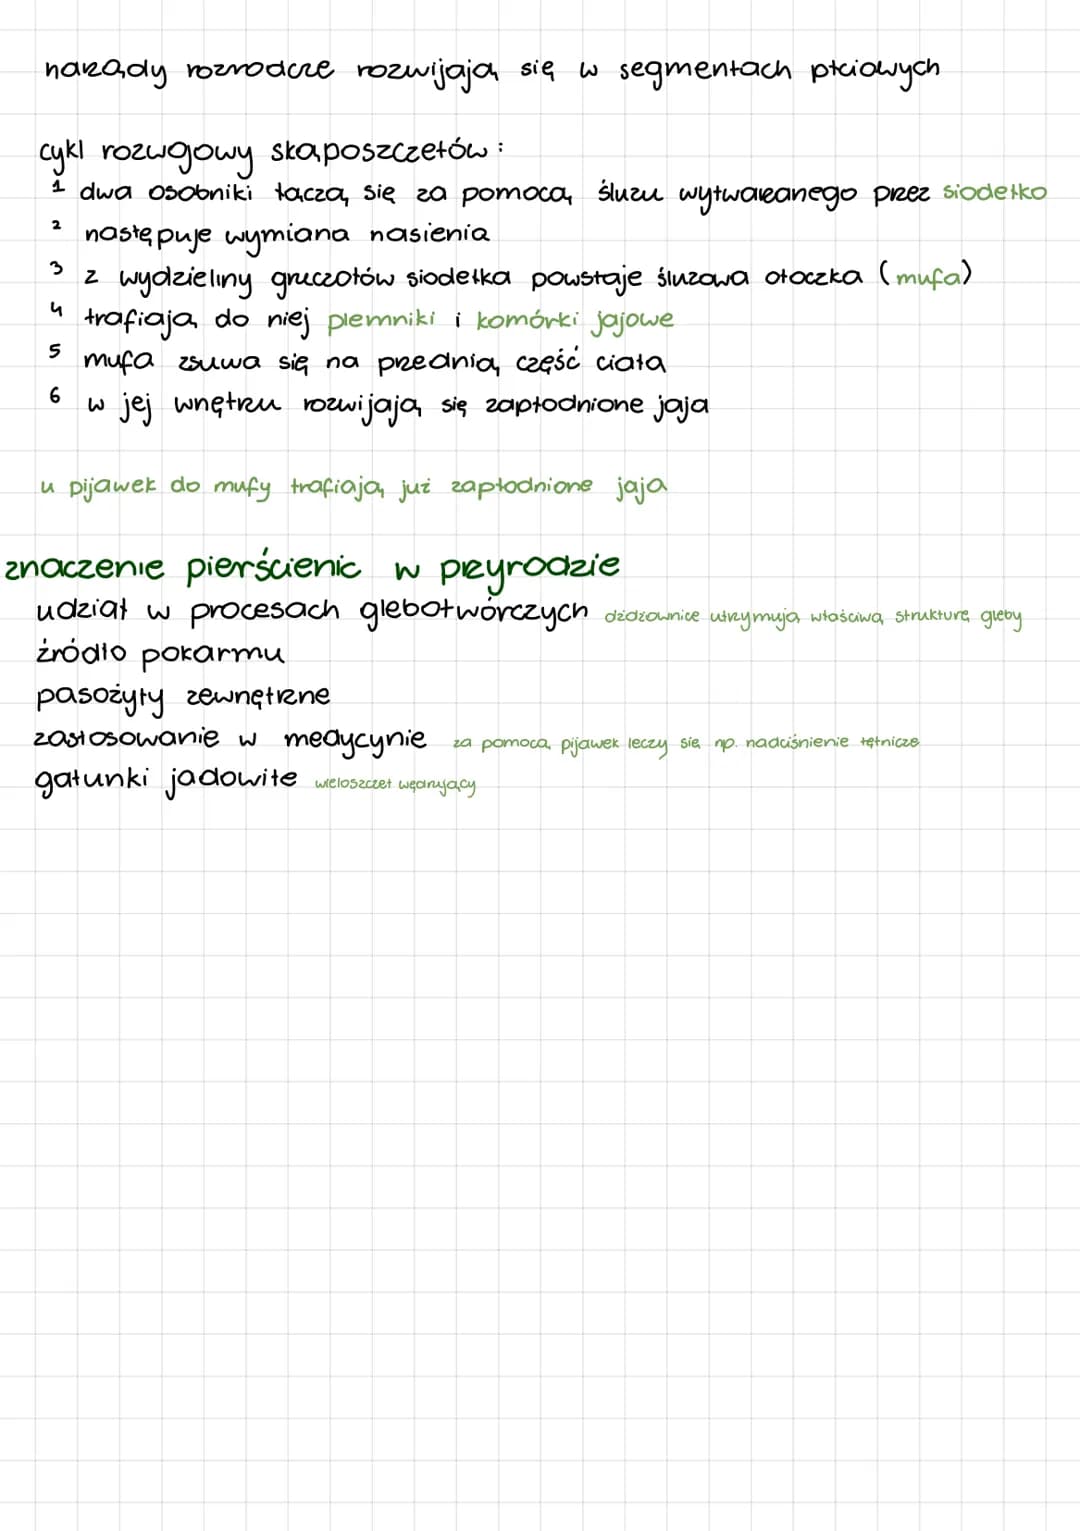 narządy rozrodcze rozwijają się w segmentach płciowych
cykl rozwojowy skąposzczetów:
1 dwa osobniki łączą się za pomocą śluzu wytwarzanego przez siodełko
2 następuje wymiana nasienia
3 z wydzieliny gruczołów siodełka powstaje śluzowa otoczka (mufa)
4 trafiają do niej plemniki i komórki jajowe
5 mufa zsuwa się na przednią część ciała
6 w jej wnętrzu rozwijają się zapłodnione jaja
u pijawek do mufy trafiają już zapłodnione jaja
znaczenie pierścienic w przyrodzie
udział w procesach glebotwórczych dżdżownice utrzymują właściwą strukturę gleby
źródło pokarmu
pasożyty zewnętrzne
zastosowanie w medycynie za pomocą pijawek leczy się np. nadciśnienie tętnicze
gatunki jadowite wieloszczet wędrujący